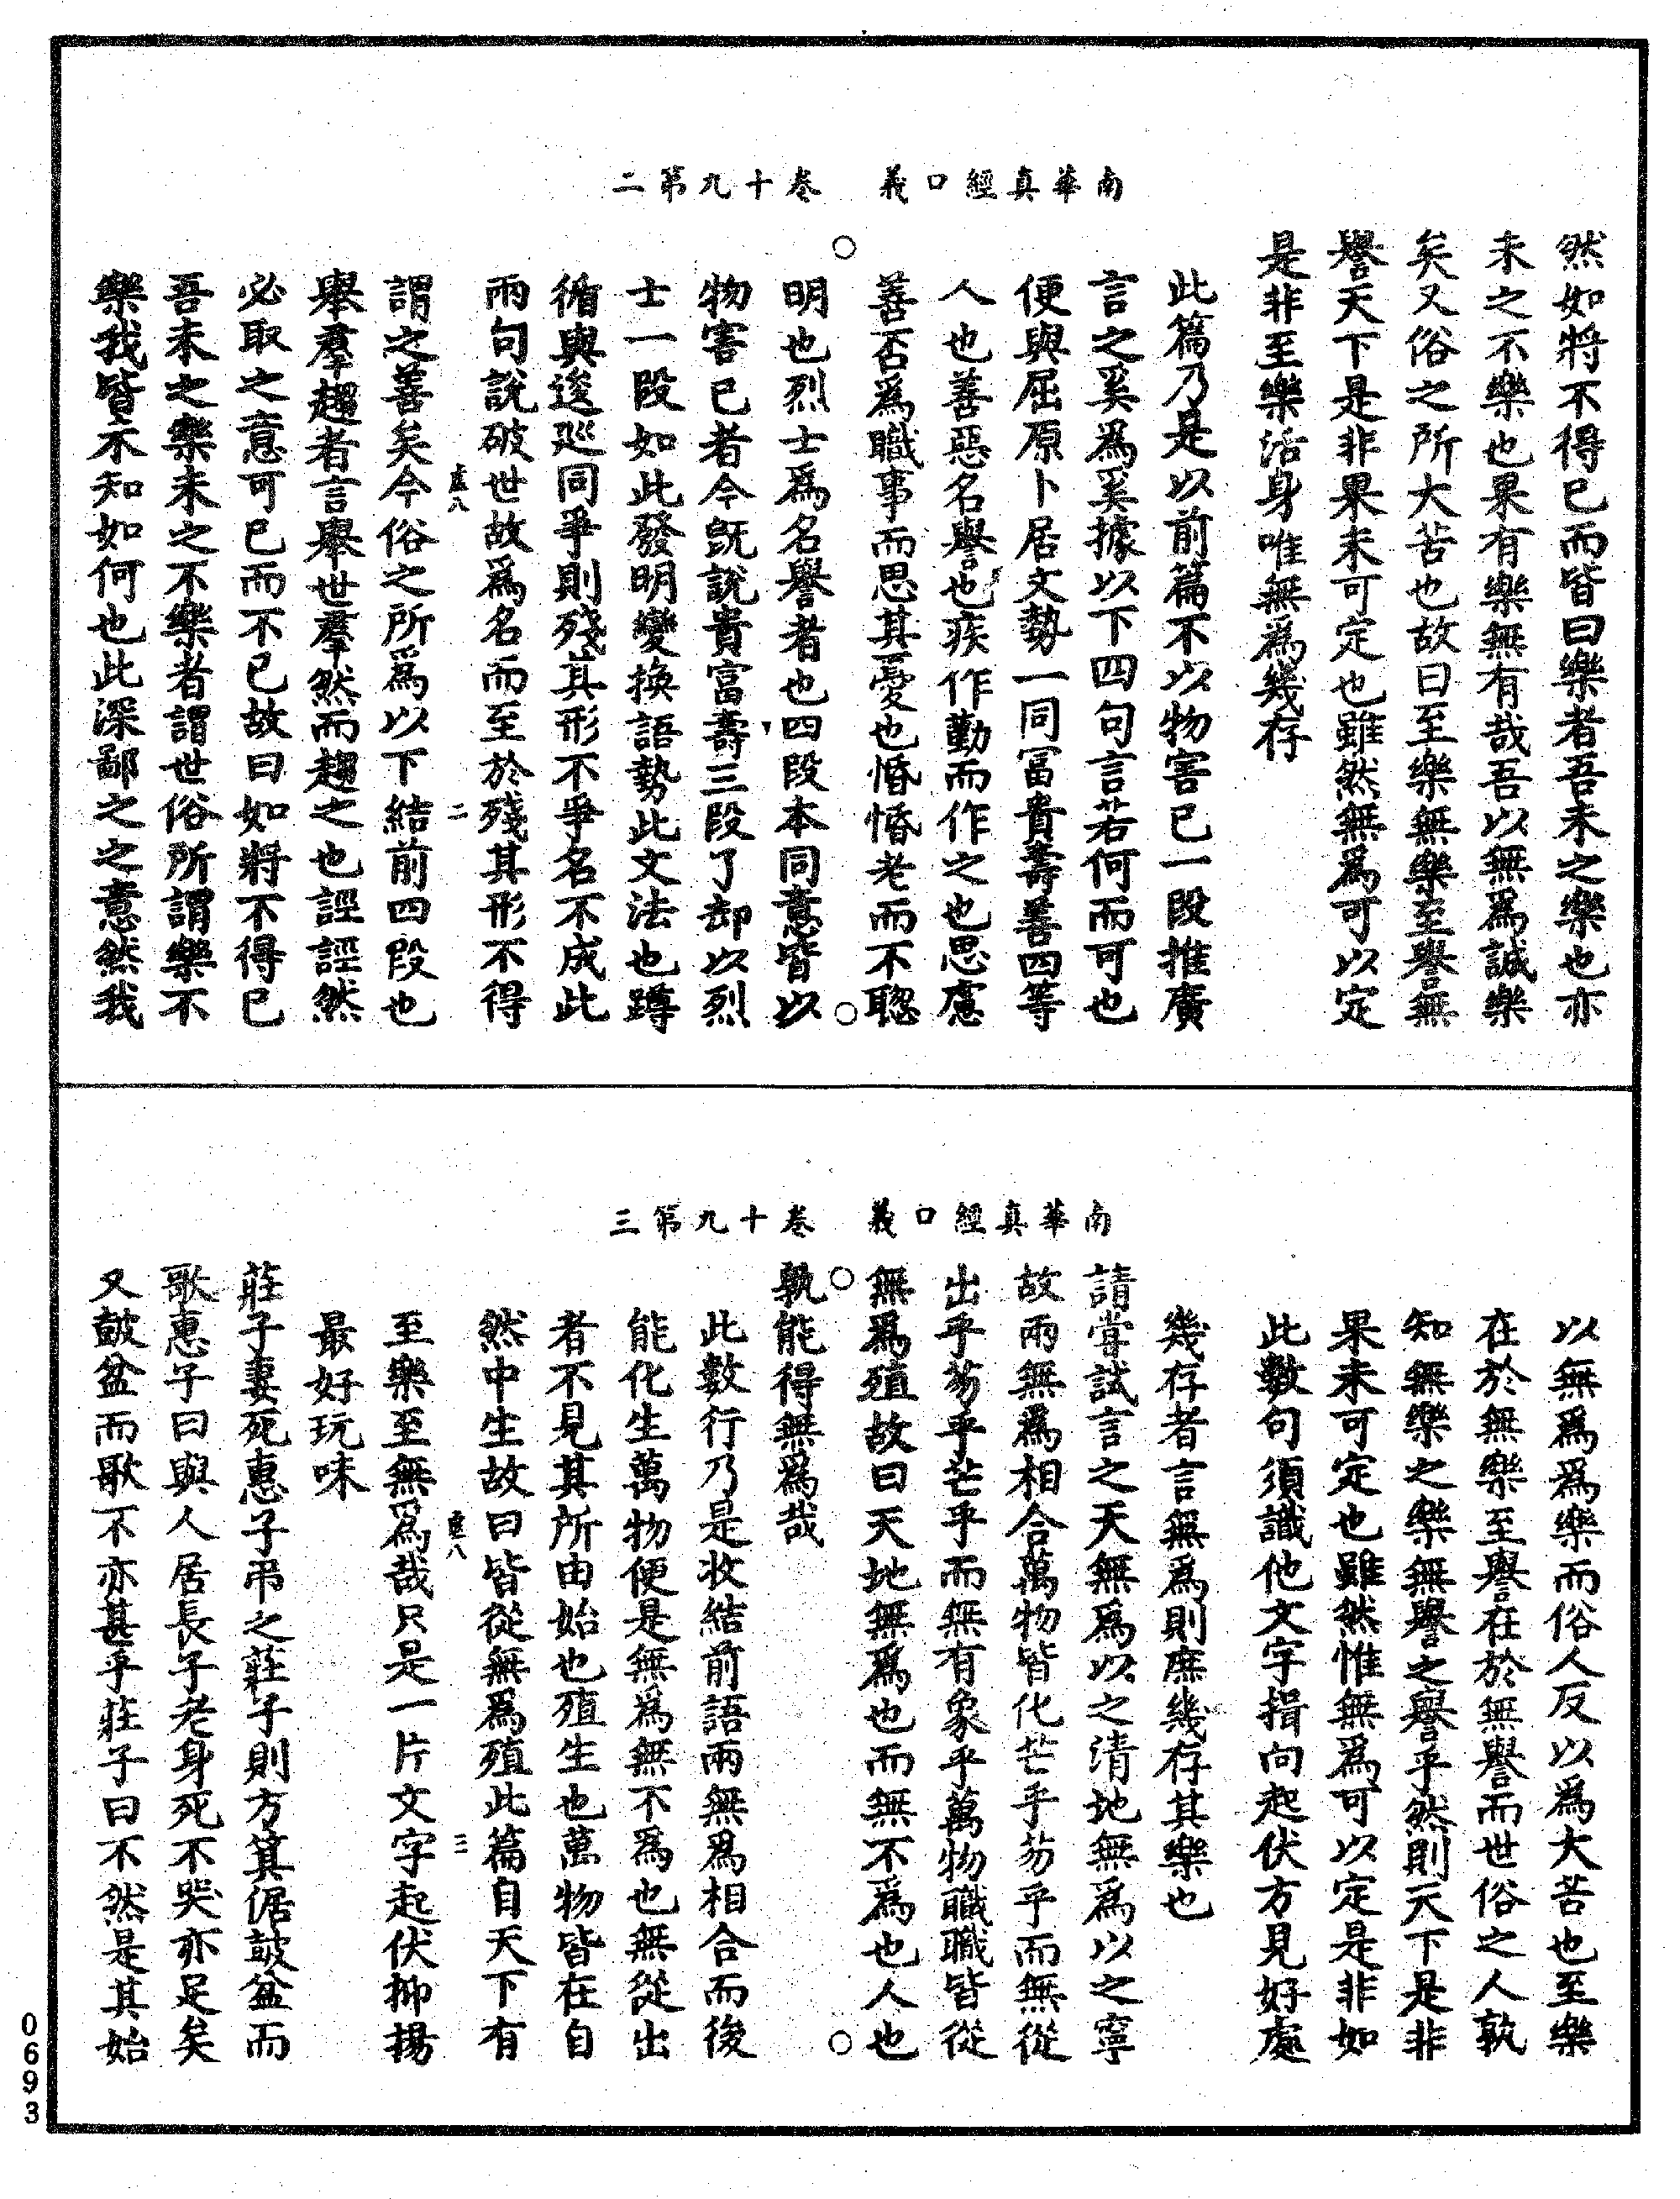 南華真經口義　卷十九第二
然如將不得已而皆曰樂者吾未之樂也亦
未之不樂也果有樂無有哉吾以無爲誠樂
矣又俗之所大苦也故曰至樂無樂至譽無
譽天下是非果未可定也雖然無爲可以定
是非至樂活身唯無爲幾存
此篇乃是以前篇不以物害已一段推廣
言之奚爲奚據以下四句言若何而可也
便與屈原卜居文勢一同富貴壽善四等
人也善惡名譽也疾作勤而作之也思慮
善否爲職事而思其憂也惛惛老而不聦
明也烈士爲名譽者也四段本同意皆以
物害已者今旣說貴富壽三段了却以烈
士一段如此發明變換語勢此文法也蹲
循與逡巡同爭則殘其形不爭名不成此
兩句說破世故爲名而至於殘其形不得
虛八　二
謂之善矣今俗之所爲以下結前四段也
舉羣趨者言舉世羣然而趨之也誙誙然
必取之意可已而不已故曰如將不得已
吾未之樂未之不樂者謂世俗所謂樂不
樂我皆不知如何也此深鄙之之意然我
南華真經口義　卷十九第三
以無爲爲樂而俗人反以爲大苦也至樂
在於無樂至譽在於無譽而世俗之人孰
知無樂之樂無譽之譽乎然則天下是非
果未可定也雖然惟無爲可以定是非如
此數句須識他文字揖向起伏方見好處
幾存者言無爲則庶幾存其樂也
請嘗試言之天無爲以之清地無爲以之寧
故兩無爲相合萬物皆化芒乎芴乎而無從
出乎芴乎芒乎而無有象乎萬物職職皆從
無爲殖故曰天地無爲也而無不爲也人也
孰能得無爲哉
此數行乃是收結前語兩無爲相合而後
能化生萬物便是無爲無不爲也無從出
者不見其所由始也殖生也萬物皆在自
然中生故曰皆從無爲殖此篇自天下有
虛八　三
至樂至無爲哉只是一片文字起伏抑揚
最好玩味
莊子妻死惠子吊之莊子則方箕倨鼓盆而
歌惠子曰與人居長子老身死不哭亦足矣
又鼓盆而歌不亦甚乎莊子曰不然是其始
0693